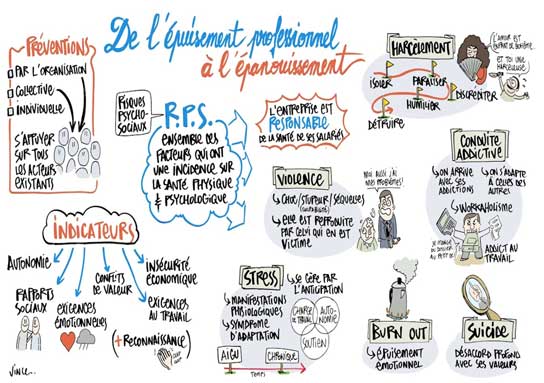 De l'épuisement professionnel
à l'épanouissement
PRÉVENTIONS
PAR L'ORGANISATION
COLLECTIVE
INDIVIDUELLE
S'APPUYER
SUR TOUS
LES ACTEURS
EXISTANTS
RISQUES
PSYCHO-
SOCIAUX
R.P.S.
ENSEMBLE DES
FACTEURS QUI ONT
UNE INCIDENCE SUR
LA SANTÉ PHYSIQUE
& PSYCHOLOGIQUE
L'ENTREPRISE EST
RESPONSABLE
DE LA SANTÉ DE SES SALARIÉS
HARCÈLEMENT
ISOLER
PARALYSER
HUMILIER
DISCRÉDITER
DÉTRUIRE
L'AMOUR EST
ENFANT DE BOHÈME
ET TOI UNE
HARCELEUSE
VIOLENCE
CHOC/STUPEUR/SÉQUELLES
(CULPABILITÉ)
ELLE EST REPRODUITE
PAR CELUI QUI EN EST
VICTIME
MOI AUSSI J'AI
MES PROBLÈMES!
CONDUITE
ADDICTIVE
ON ARRIVE
AVEC SES
ADDICTIONS
ON S'ADAPTE
À CELLES DES
AUTRES
WORKAHOLISME
ADDICT AU
TRAVAIL
INDICATEURS
AUTONOMIE
RAPPORTS
SOCIAUX
EXIGENCES
ÉMOTIONNELLES
CONFLITS
DE VALEUR
INSÉCURITÉ
ÉCONOMIQUE
EXIGENCES
AU TRAVAIL
(+ RECONNAISSANCE)
CLAP CLAP
STRESS
MANIFESTATIONS
PHYSIOLOGIQUES
SYNDROME
D'ADAPTATION
SE GÈRE PAR
L'ANTICIPATION
CHARGE
DE TRAVAIL
AUTO-
NOMIE
SOUTIEN
AIGU
CHRONIQUE
TEMPS
BURN OUT
ÉPUISEMENT
ÉMOTIONNEL
SUICIDE
DÉSACCORD PROFOND
AVEC SES VALEURS
VINCE..